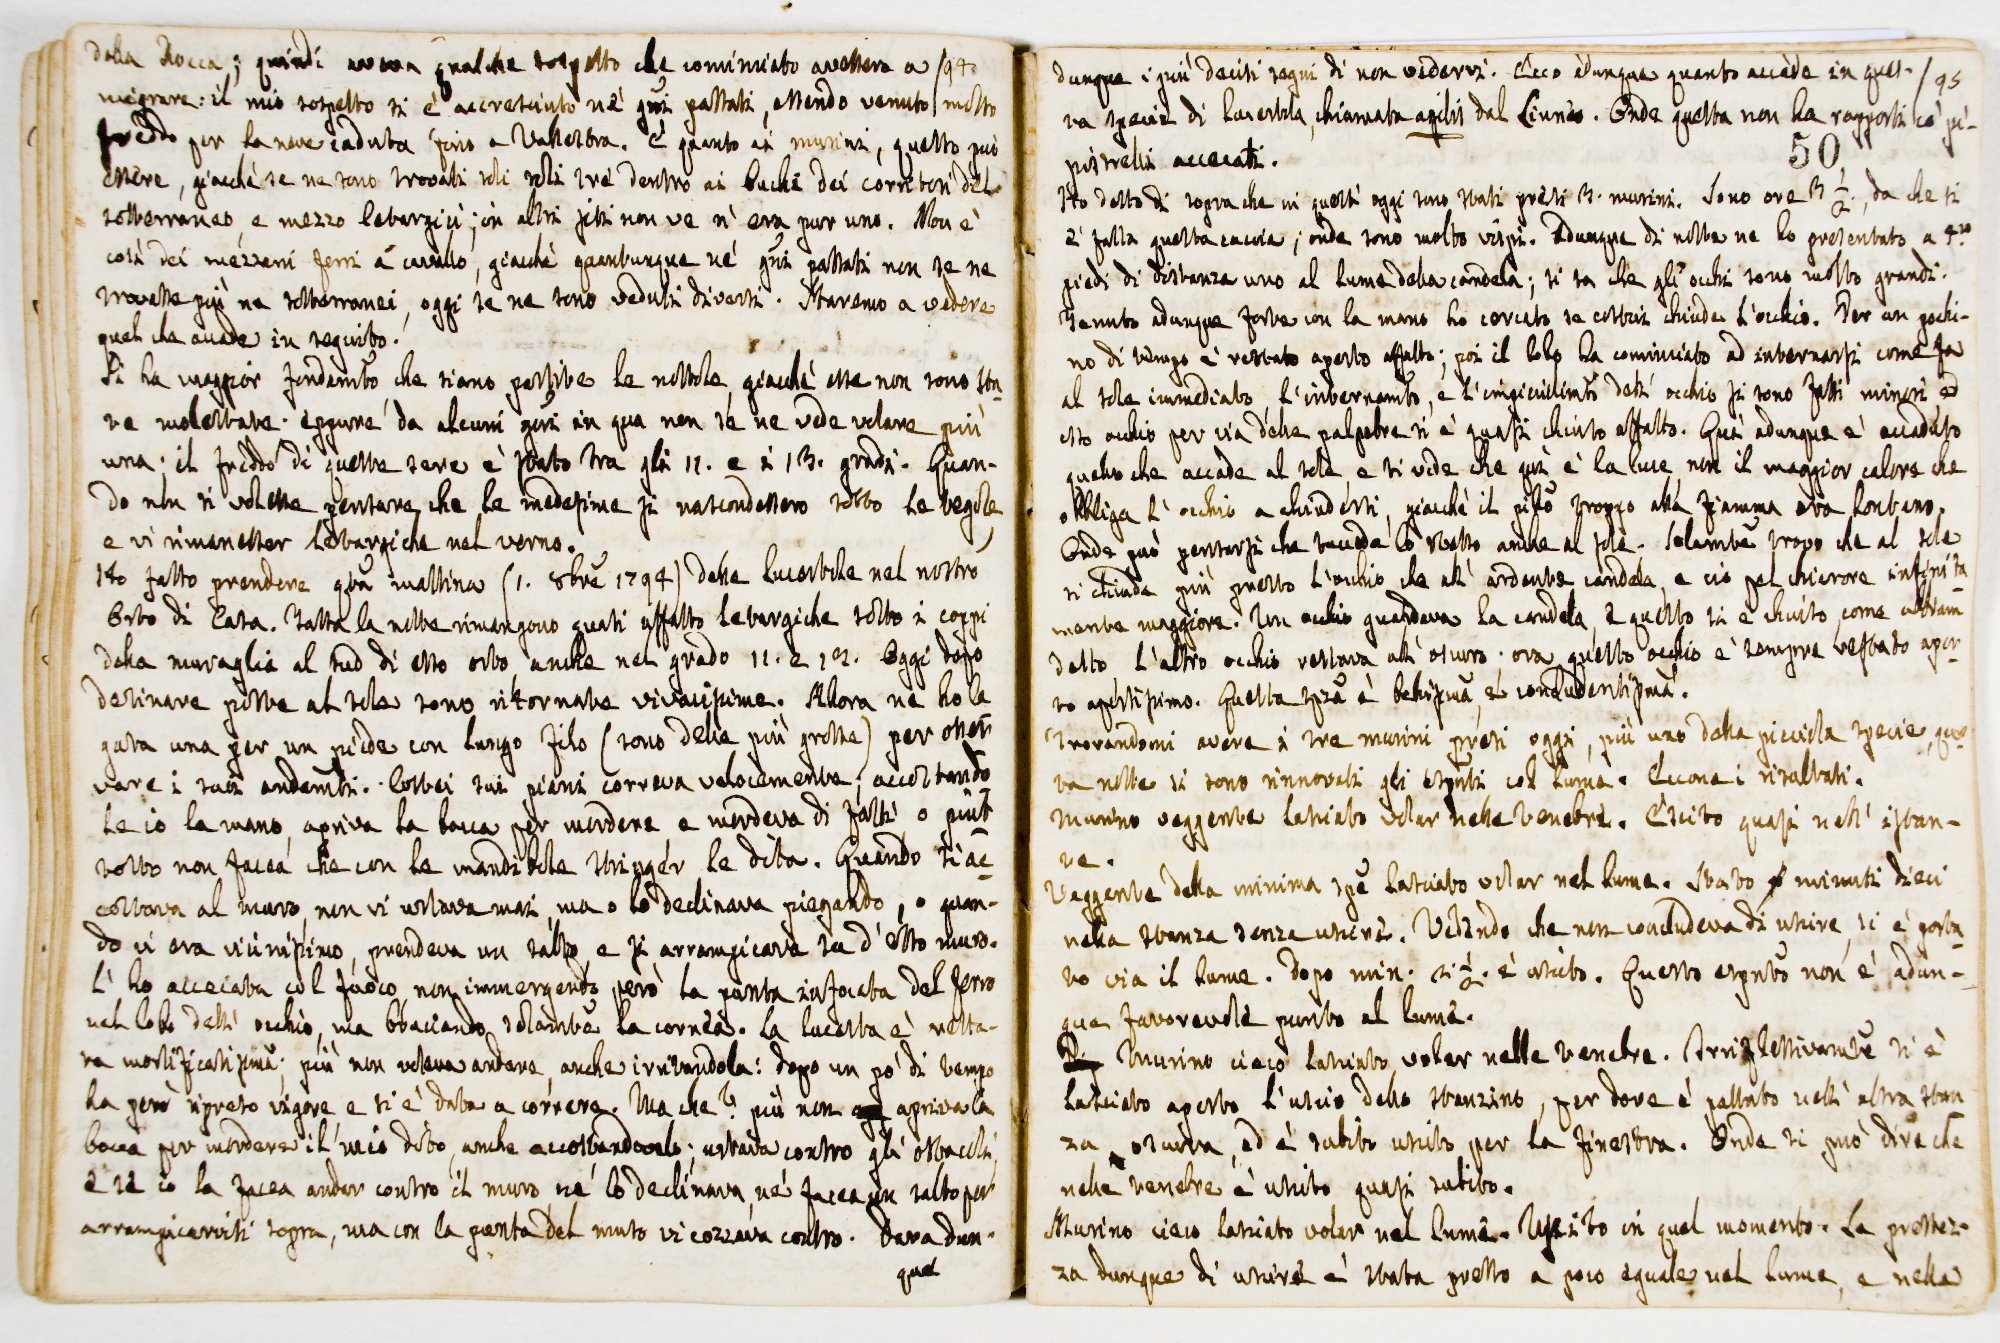 della Rocca; quindi aveva qualche sospetto che cominciato avessero a /94
migrare: il mio sospetto si è accresciuto né gni passati, essendo venuto molto
freddo per la neve caduta fino a Valestra. E quanto ai murini, questo può
essere, giacché se ne sono trovati soli soli tré dentro ai buchi dei corritori del
sotterraneo, e mezzo letargici; in altri siti non ve n' era pur uno. Non è
così dei mezzani ferri a cavallo, giacché quantunque né gni passati non se ne
trovasse più ne sotterranei, oggi se ne sono veduti diversi. Staremo a vedere
quel che accade in seguito.
Si ha maggior fondamto che siano partite le nottole, giacché esse non sono sta-
te molestate. eppure da alcuni gni in qua non se ne vede volare più
una; il freddo di queste sere è stato tra gli 11. e i 13. gradi. Quan-
do non si volesse pensare che le medesime si nascondessero sotto le tegole,
e vi rimanesser letargiche nel verno.
Ho fatto prendere qta mattina (1. 8bre 1794) delle lucertole nel nostro
Orto di Casa. Tutta la notte rimangono quasi affatto letargiche sotto i coppi
della muraglia al sud di esso orto anche nel grado 11. e 12. Oggi dopo
desinare poste al sole sono ritornate vivacissime. Allora ne ho le
gata una per un piede con lungo filo (sono delle più grosse) per osser
vare i suoi andamti. Costei sui piani correva velocemente; accostando
le io la mano, apriva la bocca per mordere e mordeva di fatti o piut
tosto non facea che con le mandibole stringer le dita. Quando si ac
costava al muro, non vi urtava mai, ma o lo declinava piegando, o quan-
do vi era vicinissimo, prendeva un salto e si arrampicava su d' esso muro.
L' ho accecata col fuoco, non immergendo però la punta infocata del ferro
nel lobo dell' occhio, ma bbruciando solamte la cornea. La lucerta è resta-
ta mortificatissima; più non voleva andare, anche irritandola: dopo un pó di tempo
ha però ripreso vigore e si è data a correre. Ma che? più non apriva la
bocca per mordere il mio dito, anche accostandoglielo; urtava contro gli ostacoli,
e se io la facea andar contro il muro né lo declinava, né facea un salto per
arrampicarvisi sopra, ma con la punta del muso vi cozzava contro. Dava dun-
que
dunque i più decisi segni di non vedervi. Ecco adunque quanto accade in ques- /95
ta specie di lucertola, chiamata agilis dal Linneo. Onde questa non ha rapporti co' pi-
pistrelli accecati.
50
Ho detto di sopra che in questi oggi sono stati presi 3. murini. Sono ore 3 1/2, da che si
è fatta questa caccia; onde sono molto vispi. Adunque di notte ne ho presentato a 4ro
piedi di distanza uno al lume della candela; si sa che gli occhi sono molto grandi.
Tenuto adunque forte con la mano ho cercato se costui chiude l' occhio. Per un pochi-
no di tempo è restato aperto affatto; poi il lobo ha cominciato ad internarsi come fa
al sole immediato. L' internamto, e l' impicciolimto dell' occhio si sono fatti minori ed
esso occhio per via delle palpebre si è quasi chiuso affatto. Qui adunque è accaduto
quello che accade al sole e si vede che qui è la luce, non il maggior calore che
obbliga l' occhio a chiudersi, giacché il pipistrello troppo alla fiamma era lontano.
Onde può pensarsi che succeda lo stesso anche al sole. Solamte trovo che al sole
si chiude più presto l' occhio che all' ardente candela, e ciò pel chiarore infinita
mente maggiore. Un occhio guardava la candela, e questo si è chiuso come abbiam
detto. L' altro occhio restava all' oscuro; ora questo occhio è sempre restato aper-
to apertissimo. Questa spza è bellissima e concludentissima.
Trovandomi avere i tre murini presi oggi, più uno della picciola specie, ques-
ta notte si sono rinnovati gli espnti col lume. Eccone i risultati.
Murino veggente lasciato volar nelle tenebre. Escito quasi nell' istan-
te.
Veggente della minima spe lasciato volar nel lume. Stato minuti dieci
nella stanza senza uscire. Vedendo che non concludeva di uscire, si è porta
to via il lume. Dopo min. 2 1/2. è uscito. Questo espnto non è adun-
que favorevole punto al lume.
Murino cieco lasciato voler nelle tenebre. Irriflessivamte si è
lasciato aperto l' uscio dello stanzino, per dove è passato nell' altra stan
za oscura, ed è subito uscito per la finestra. Onde si può dire che
nelle tenebre è uscito quasi subito.
Murino cieco lasciato volar nel lume. Uscito in quel momento. La prestez-
za dunque di uscire è stata presso a poco eguale nel lume, e nelle